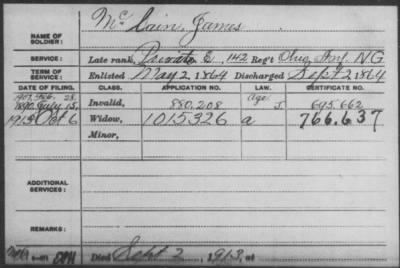 NAME OF SOLDIER: McCain, James
SERVICE: Late rank, Private E, 142 Reg't Ohio Inf. NG
TERM OF SERVICE: Enlisted May 2, 1864 Discharged Sept 2, 1864
DATE OF FILING. CLASS. APPLICATION NO. LAW. CERTIFICATE NO.
1890 July 15, Invalid, 880,208 Age J. 695.662
1913 Oct 6 Widow, 1015326 a 766.637
Minor,
ADDITIONAL SERVICES:
REMARKS:
Died Sept 2, 1913, at